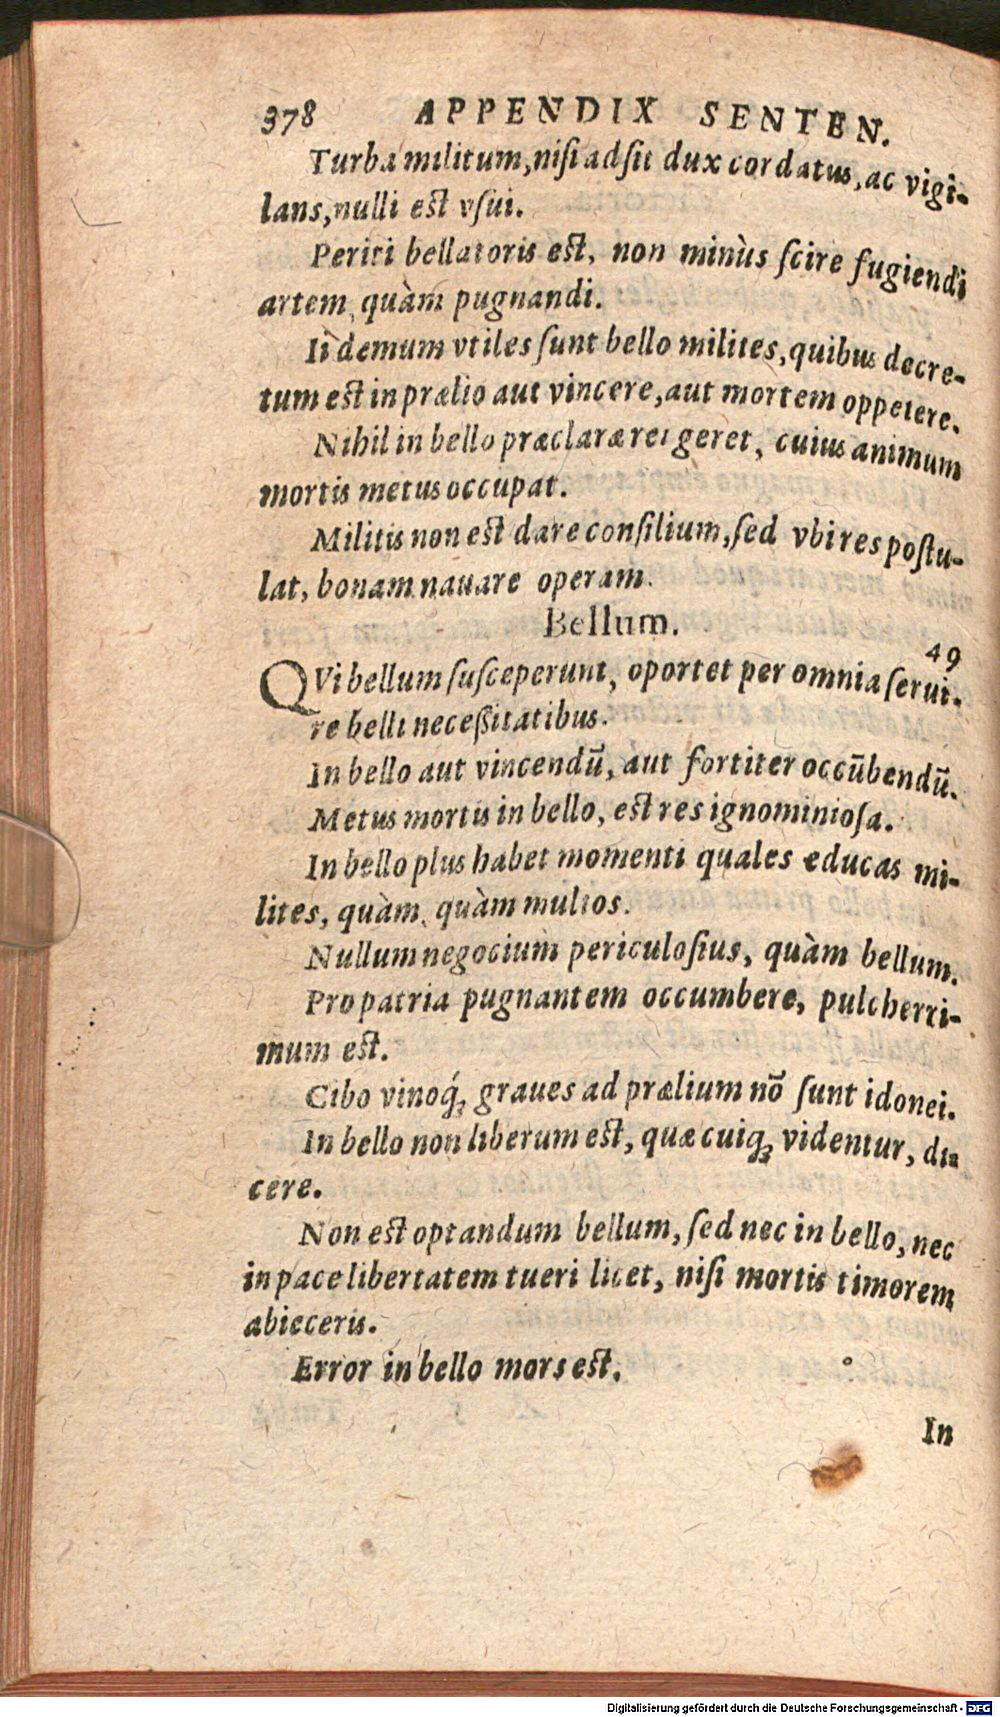 378 APPENDIX SENTEN.
Turba militum, nisi adsit dux cordatus, ac vigi-
lans, nulli est vsui.
Periti bellatoris est, non minùs scire fugiendi
artem, quàm pugnandi.
Ii demum vtiles sunt bello milites, quibus decre-
tum est in prælio aut vincere, aut mortem oppetere.
Nihil in bello præclaræ rei geret, cuius animum
mortis metus occupat.
Militis non est dare consilium, sed vbi res postu-
lat, bonam nauare operam.
Bellum.
49
QVi bellum susceperunt, oportet per omnia serui-
re belli necessitatibus.
In bello aut vincendū, aut fortiter occūbendū.
Metus mortis in bello, est res ignominiosa.
In bello plus habet momenti quales educas mi-
lites, quàm, quàm multos.
Nullum negocium periculosius, quàm bellum.
Pro patria pugnantem occumbere, pulcherri-
mum est.
Cibo vinoq́; graues ad prælium nō sunt idonei.
In bello non liberum est, quæ cuiq; videntur, di-
cere.
Non est optandum bellum, sed nec in bello, nec
in pace libertatem tueri licet, nisi mortis timorem
abieceris.
Error in bello mors est.
In
Digitalisierung gefördert durch die Deutsche Forschungsgemeinschaft - DFG